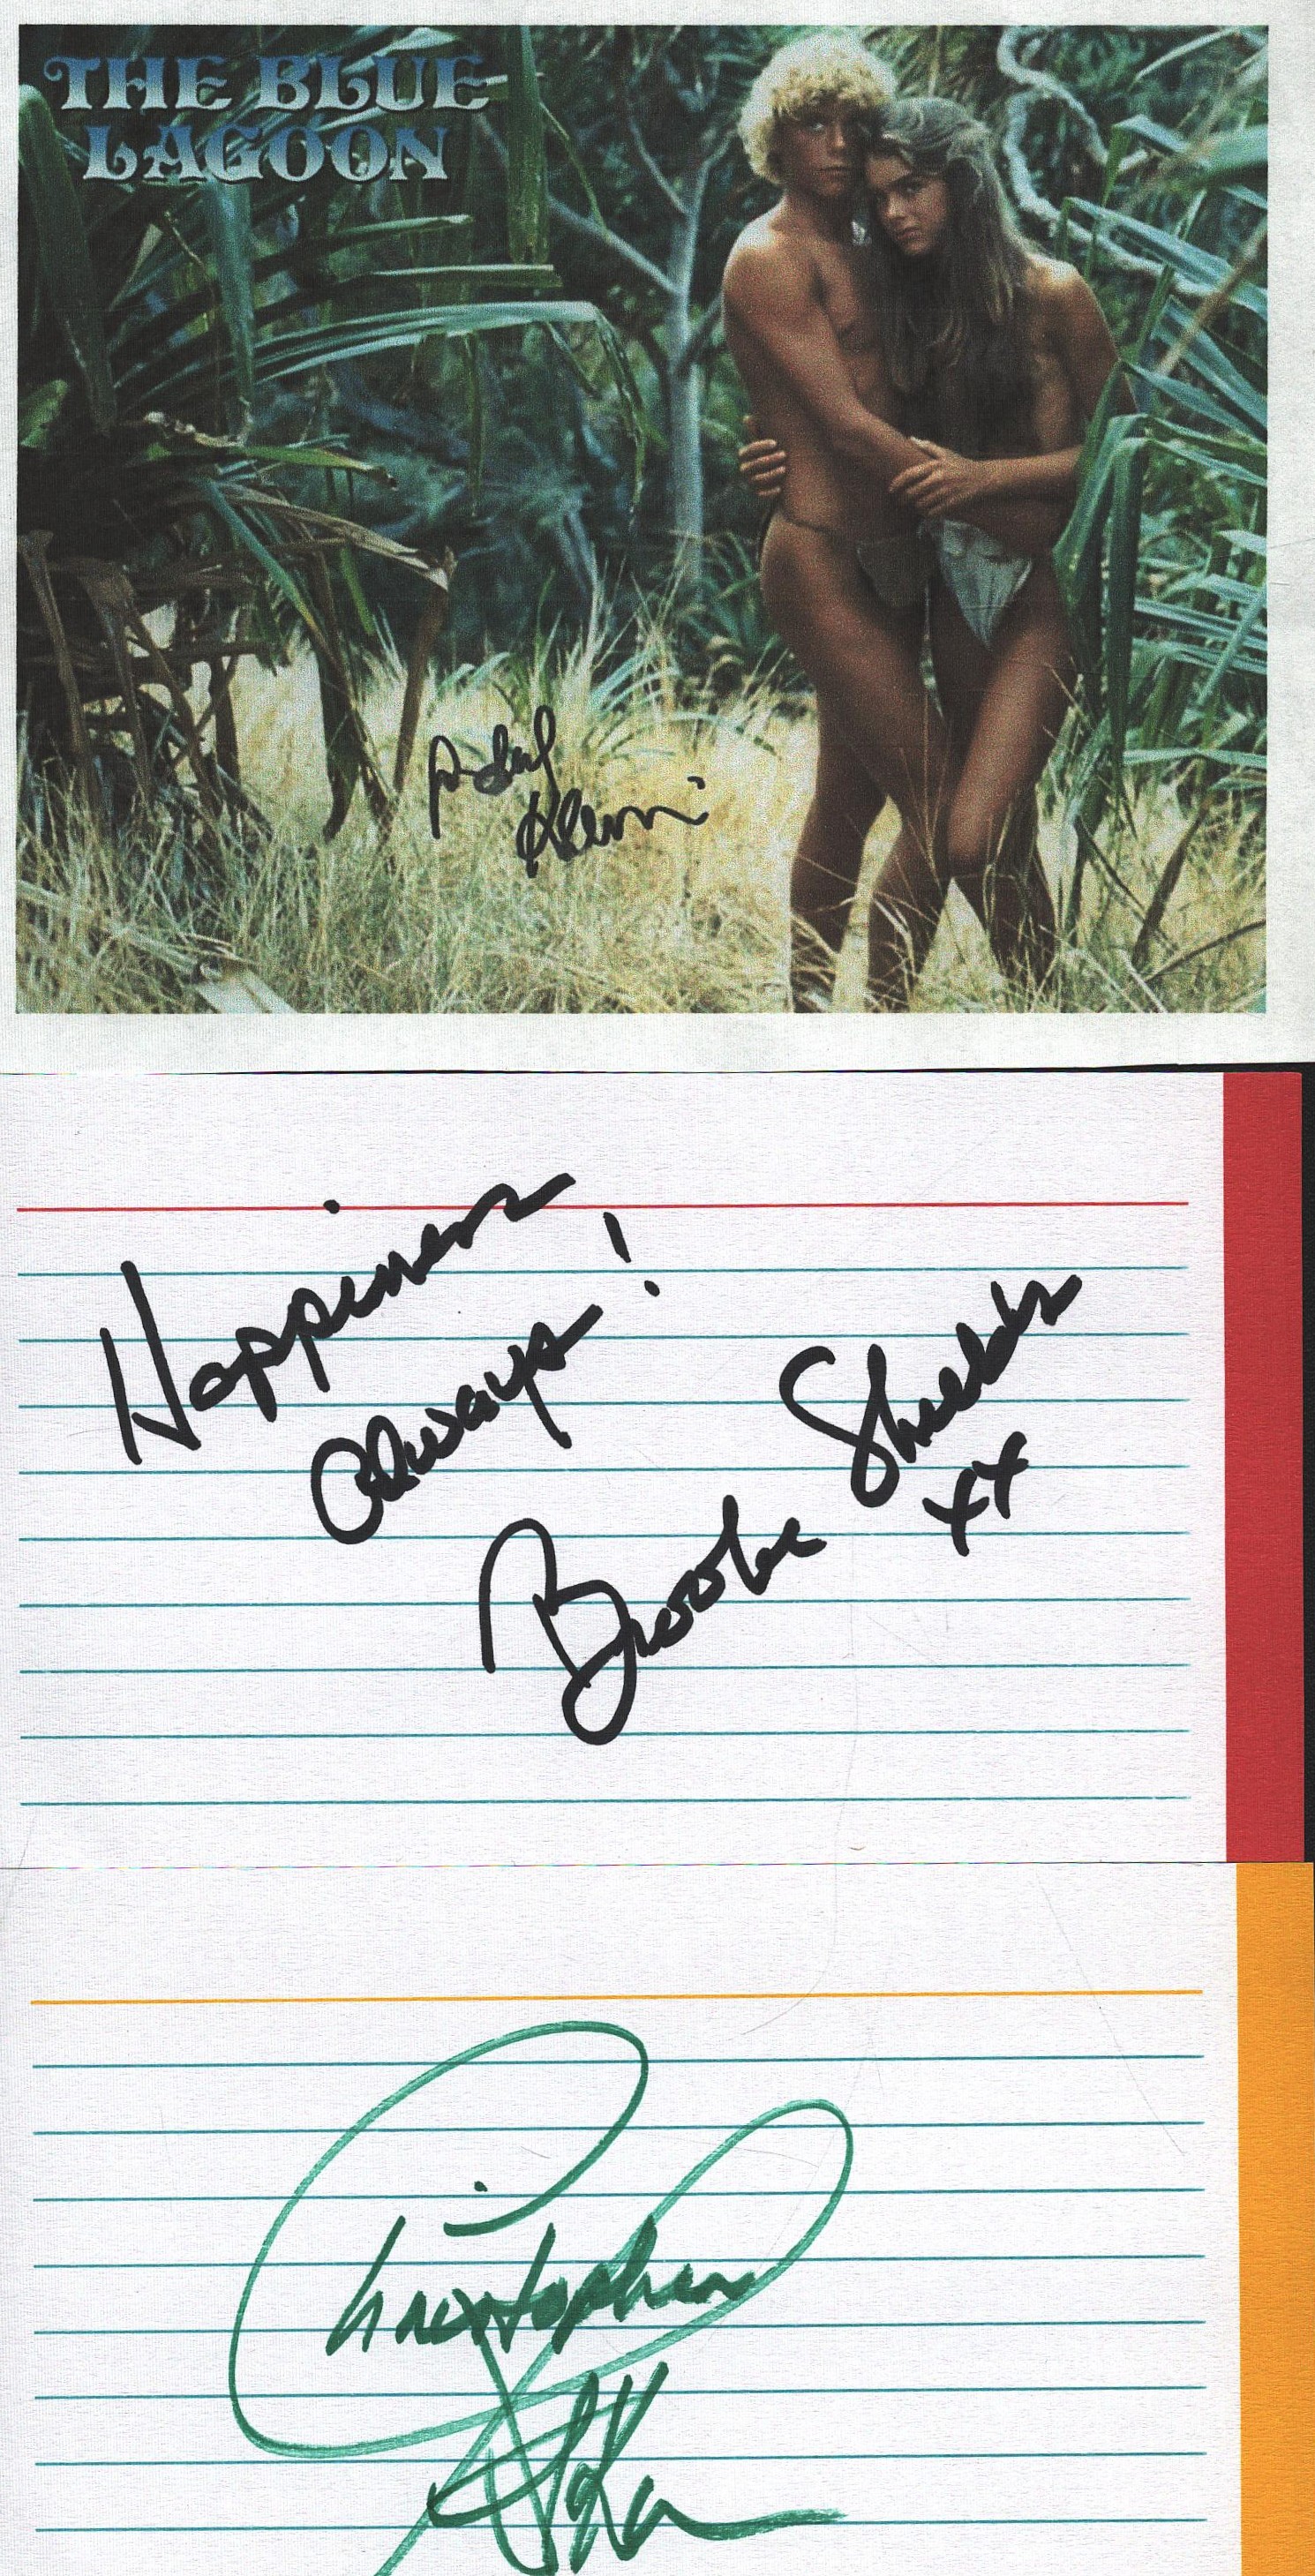 THE BLUE
LAGOON
Randal
Kleiser
Happiness
always!
Brooke Shields
xx
Christopher
Atkins